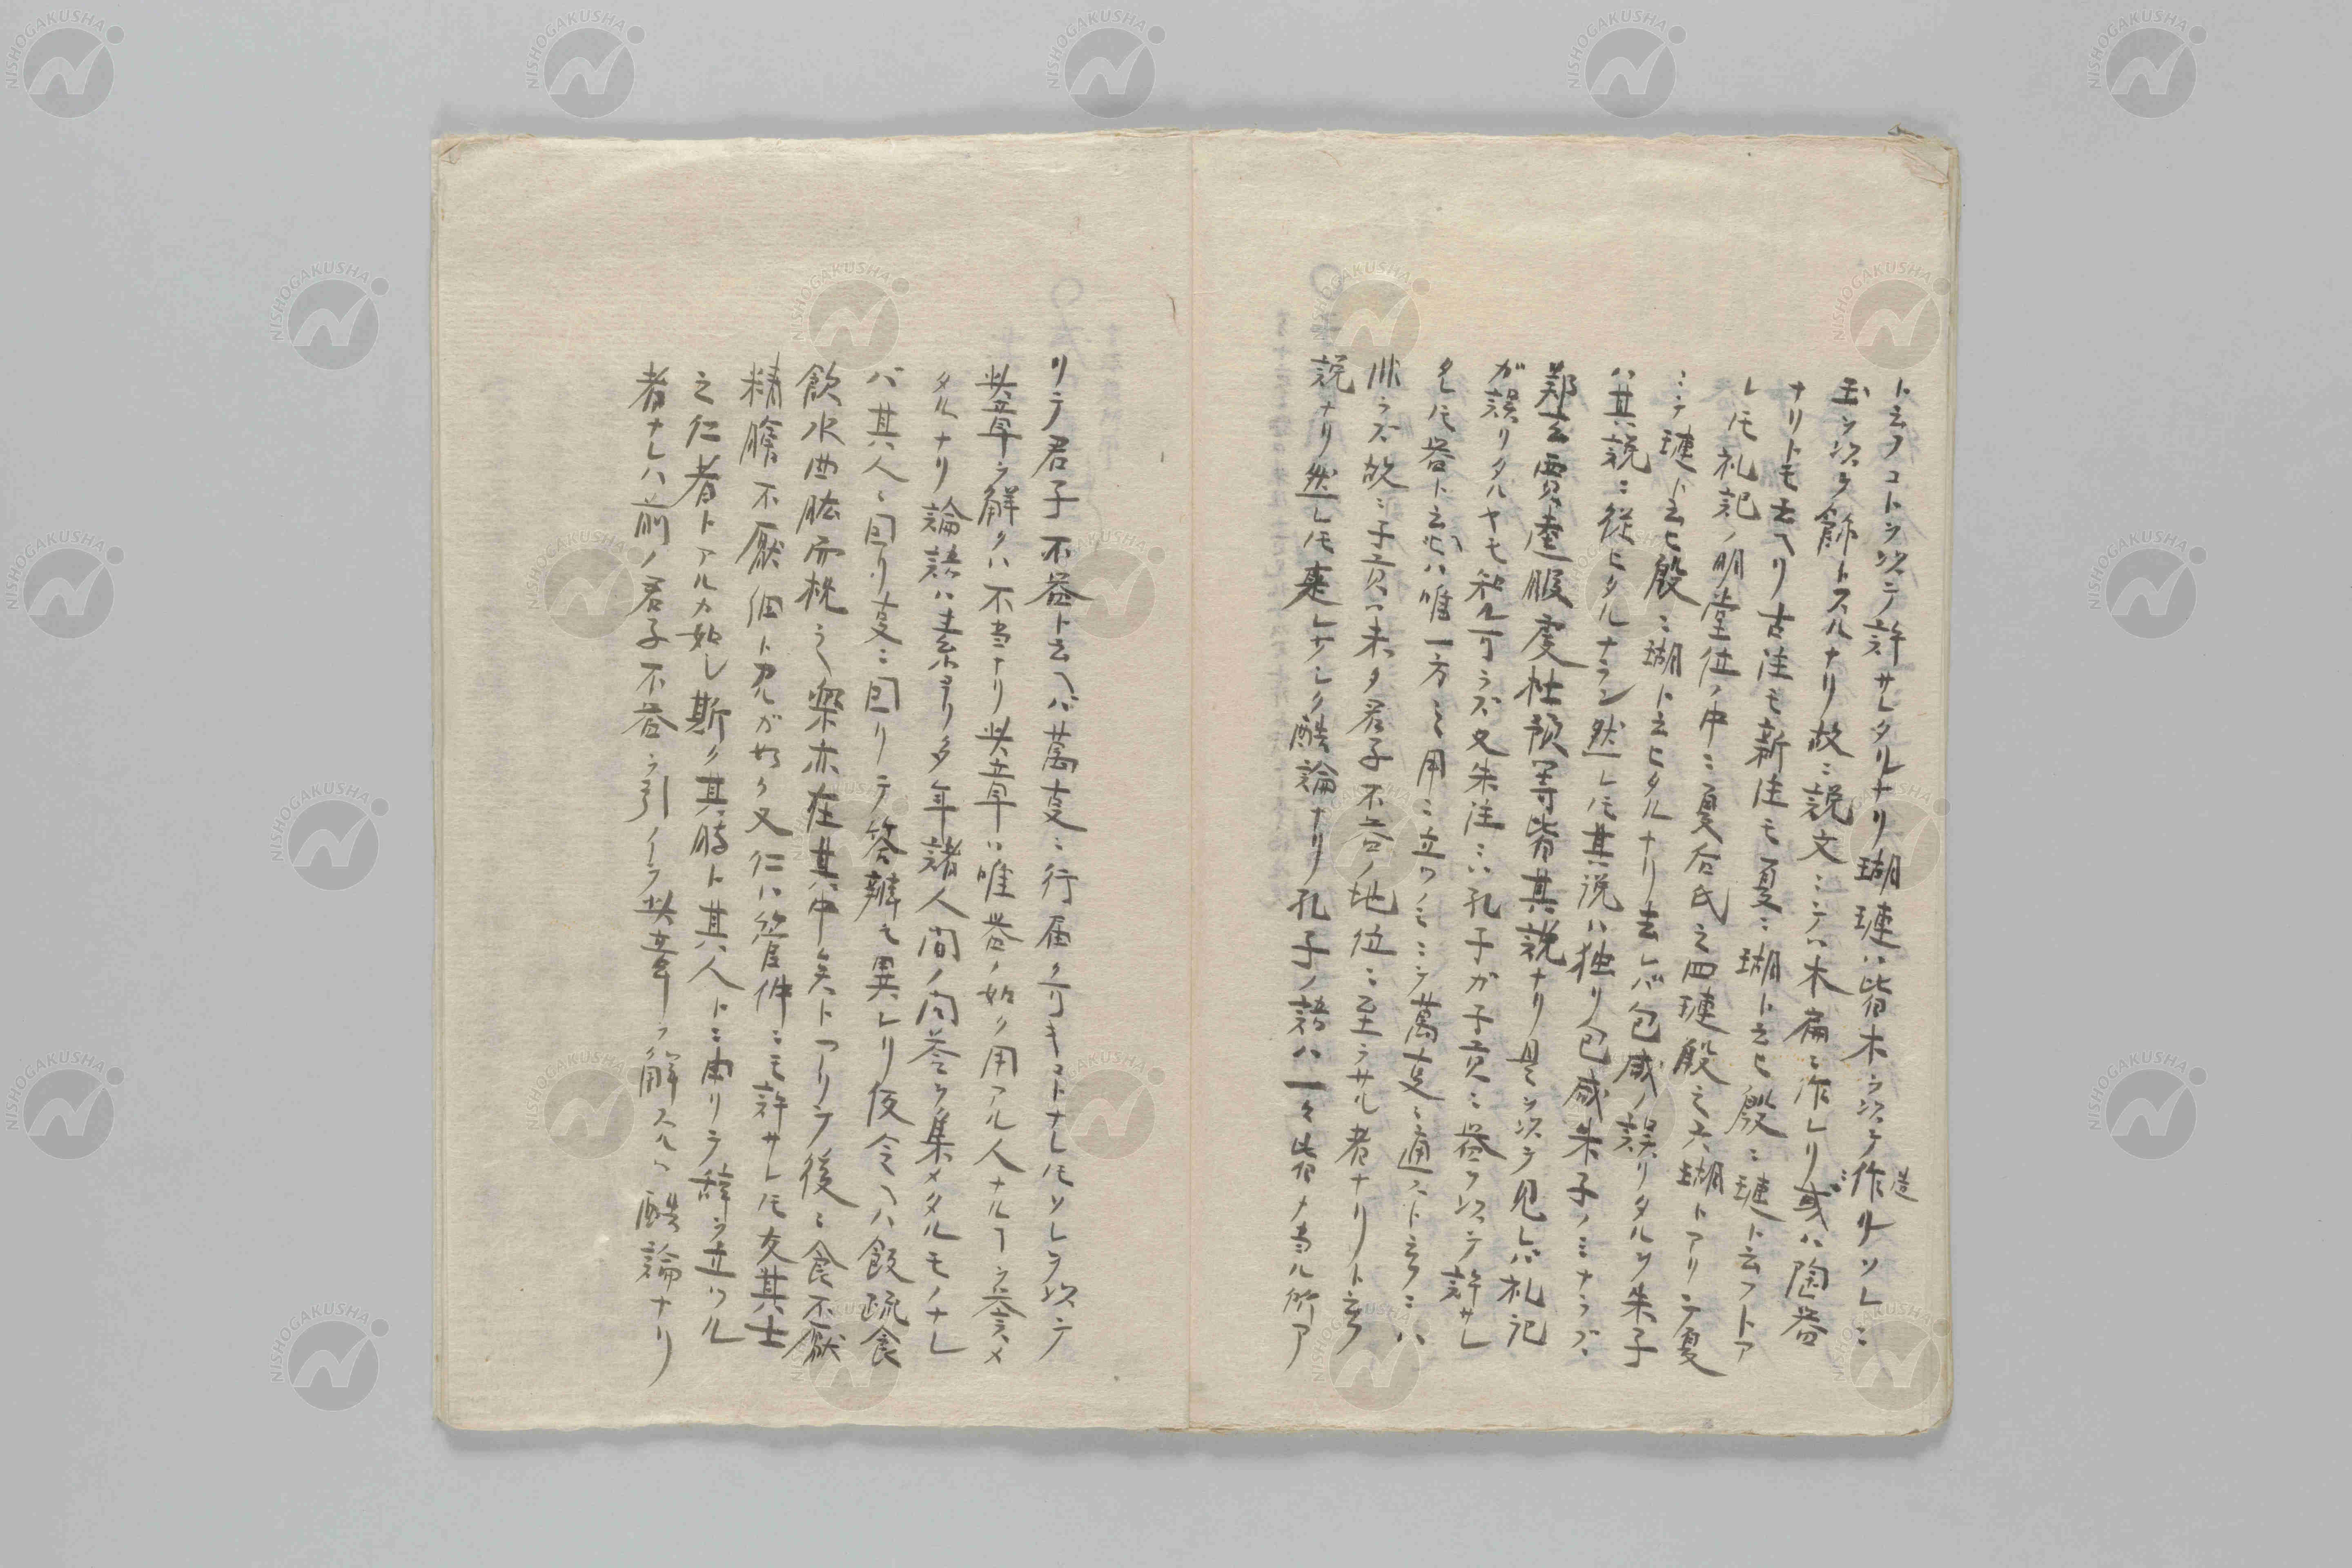 ト云フコトヲ以テ許サレタルナリ瑚璉ハ皆木ヲ以テ作ルソレニ
造
玉ヲ以テ飾トスルナリ故ニ説文ニテハ木扁ニ作レリ或ハ陶器
ナリトモ云ヘリ古注モ新注モ夏ニ瑚ト云ヒ殷ニ璉ト云フトア
レ𪜈礼記ノ明堂位ノ中ニ夏后氏之四璉殷之六瑚トアリテ夏
ニテ璉ト云ヒ殷ニ瑚ト云ヒタルナリ去レバ包咸ノ誤リタルヲ朱子
ハ其説ニ従ヒタルナラン然レ𪜈其説ハ独リ包咸朱子ノミナラズ
鄭玄賈逵服虔杜預等皆其説ナリ是ヲ以テ見レバ礼記
ガ誤リタルヤモ知ル可ラズ又朱注ニハ孔子ガ子貢ニ器ヲ以テ許サレ
タレ𪜈器ト云ハ唯一方ニ用ニ立ツノミニテ萬支ニ通ストニハ
非ラズ故ニ子貢ハ未タ君子不器ノ地位ニ至ラサル者ナリト云フ
説ナリ然レ𪜈是レサレク酷論ナリ孔子ノ語ハ一々皆ナ当ル所ア
リテ君子不器ト云ヘバ萬支ニ行届ク可キコトナレ𪜈ソレヲ以テ
此章ヲ解クハ不当ナリ此章ハ唯器ノ如ク用アル人ナルヿヲ誉メ
タルナリ論語ハ素ヨリ多年諸人間ノ問答ヲ集メタルモノナレ
バ其人ニ因リ支ニ因リテ答辨モ異レリ仮令ヘハ飯疏食
飲水曲肱而枕之楽亦在其中矣トアリテ後ニ食不厭
精膾不厭細ト見ガ如ク又仁ハ管仲ニモ許サレ𪜈友其士
之仁者トアルカ如シ斯ク其時ト其人トニ由リテ辞ヲ立ツル
者ナレハ前ノ君子不器ヲ引イテ此章ヲ解スルハ酷論ナリ